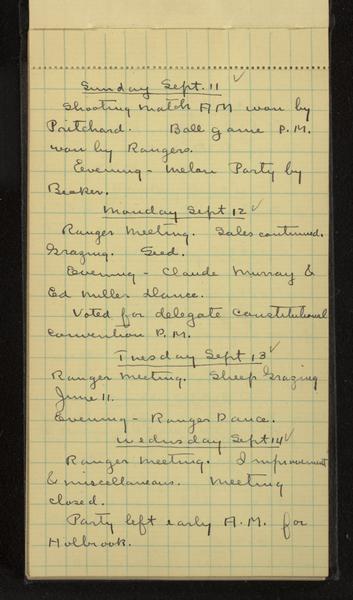 Sunday Sept. 11
Shooting match A.M won by
Pritchard. Ball game P.M.
won by Rangers.
Evening - Melon Party by
Becker.
Monday Sept 12
Ranger Meeting. Sales continued.
Grazing. Seed.
Evening - Claude Murray &
Ed Miller Dance.
Voted for delegate Constitutional
Convention P.M.
Tuesday Sept 13
Ranger Meeting. Sheep Grazing
June 11.
Evening - Ranger Dance.
Wednesday Sept 14
Ranger Meeting. Improvement
& miscellaneous. Meeting
closed.
Party left early A.M. for
Holbrook.